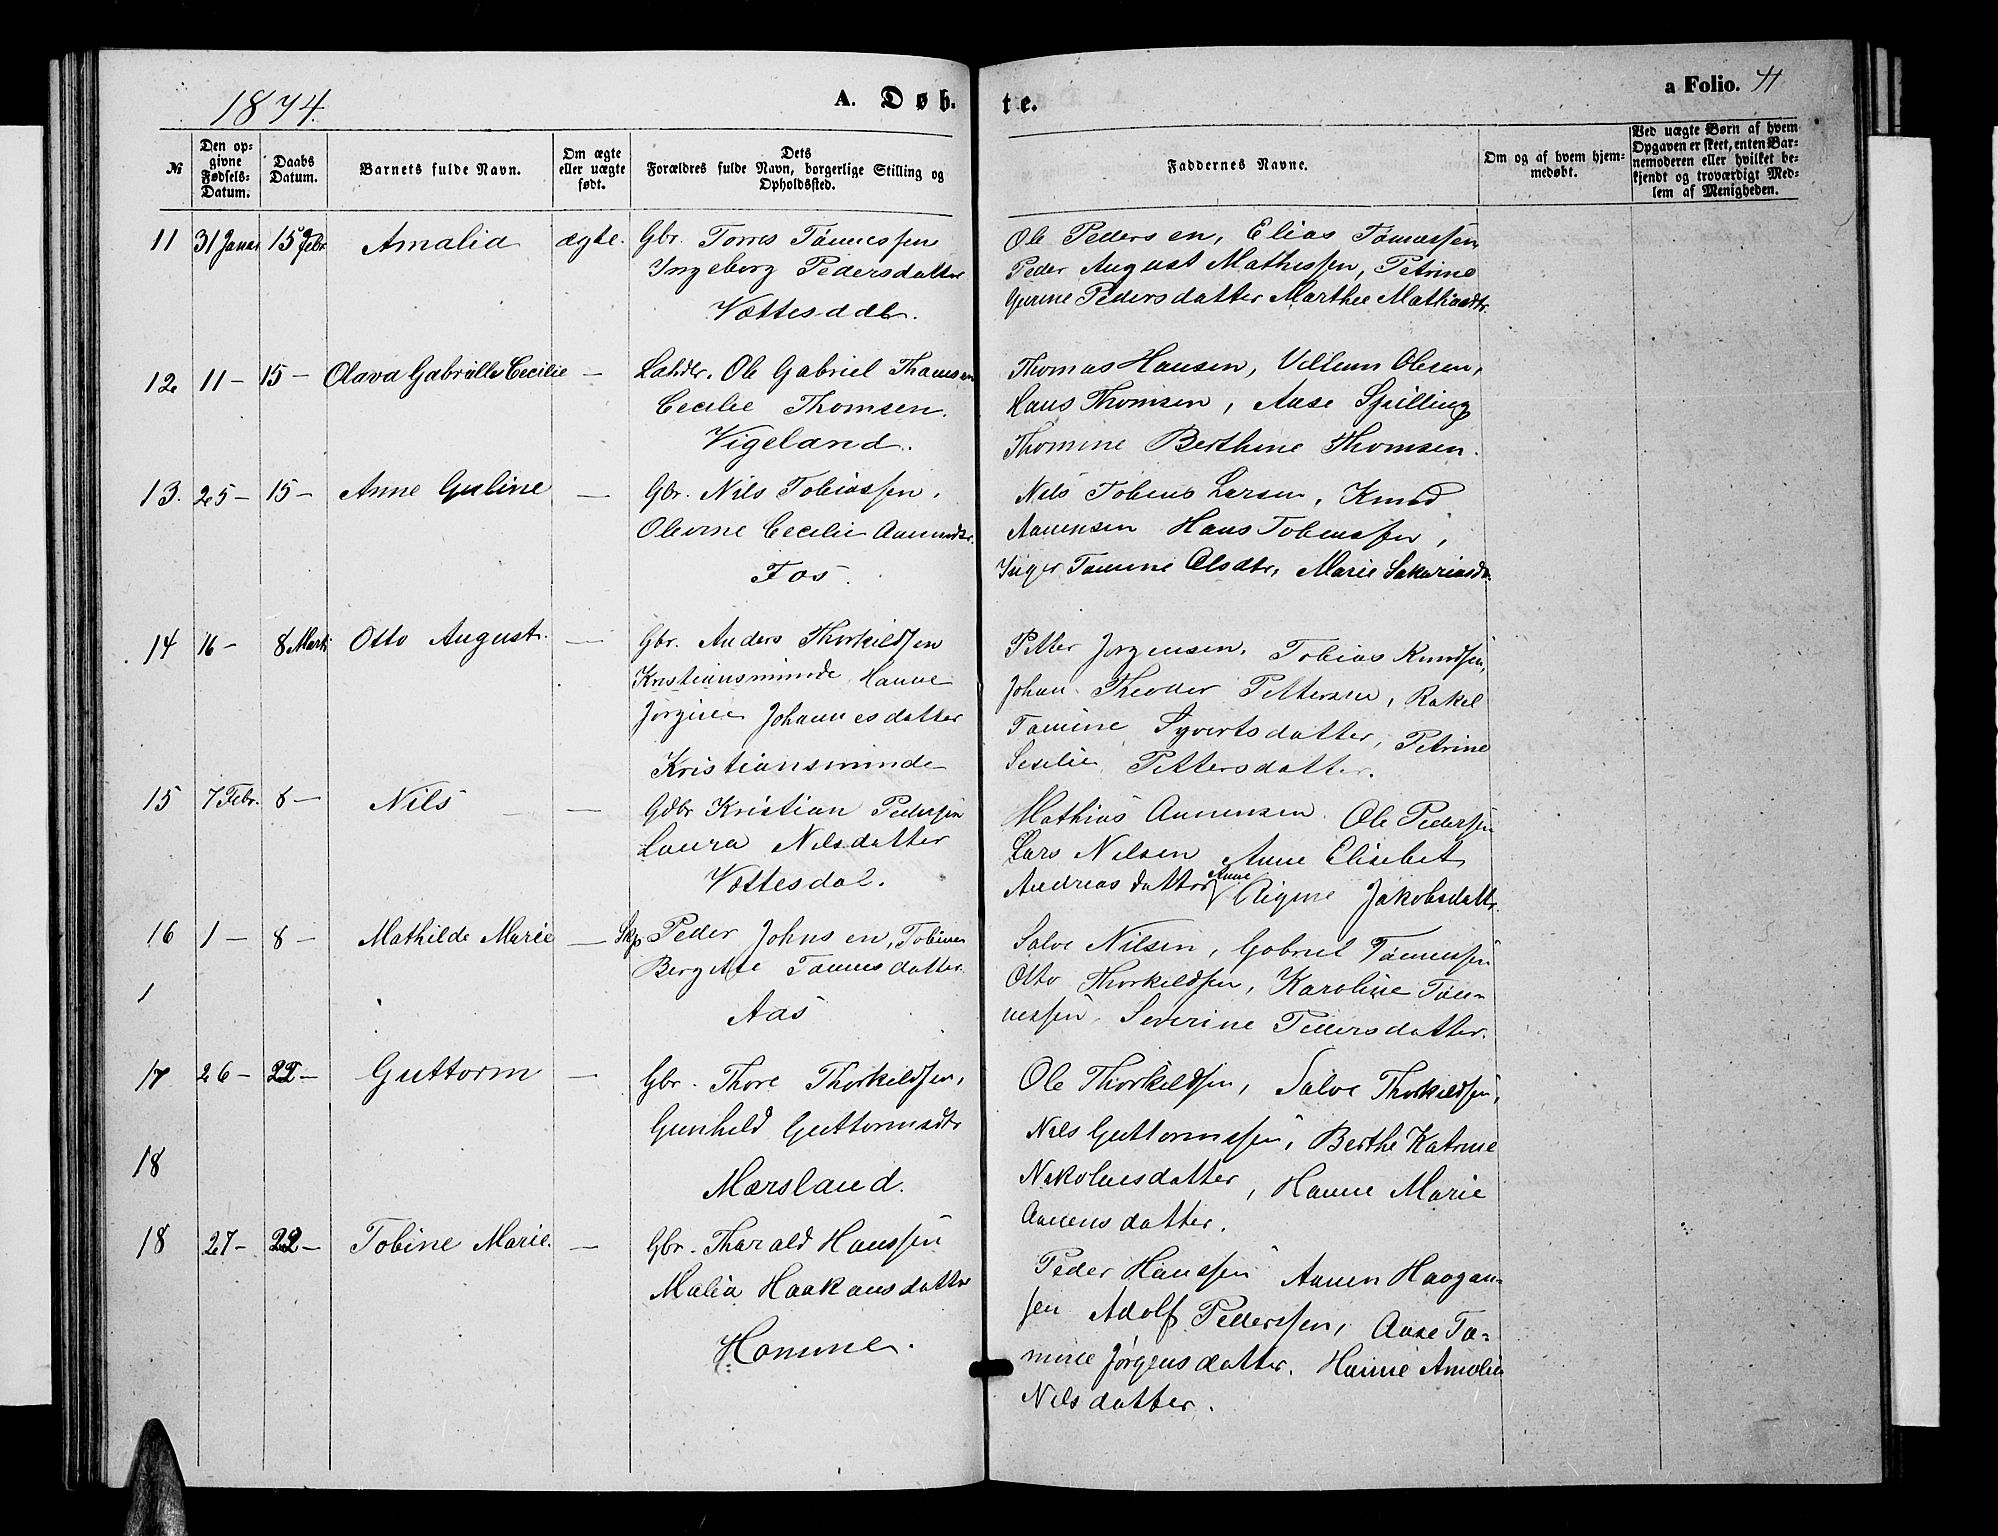 1874.
A. Døb.
te.
a Folio. 71
№
Den opgivne Fødsels-Datum.
Daabs Datum.
Barnets fulde Navn.
Om ægte eller uægte født.
Dets Forældres fulde Navn, borgerlige Stilling og Opholdssted.
Faddernes Navne.
Om og af hvem hjemmedøbt.
Ved uægte Børn af hvem Opgaven er skeet, enten Barnemoderen eller hvilket bekjendt og troværdigt Medlem af Menigheden.
11 31 Januar 15 Febr Amalia ægte. Gbr. Torres Tønnessen
Ingeborg Pedersdatter
Vattesdal.
Ole Pedersen, Elias Tønnessen
Peder August Mathissen, Petrine
Gurine Pedersdatter Marthe
12 11 – 15 – Olava Gabrille Cecilie – Ole Gabriel Thomsen
Cecilie Thomsen.
Vigeland.
Thomas Hansen, Villum Olesen,
Hans Thomsen, Aase Spilling
Thomine Berthine Thomsen.
13. 25 – 15 – Anne Guline – Gbr. Nils Tobiassen,
Olevine Cecilie
Fos.
Nils Tobias Larsen, Knud
Aanensen Hans Tobiassen,
Inger Tomine Olsdtr, Marie Sakariasdr.
14 16 – 8 Marts Otto August. – Gbr. Anders Thorkildsen
Kristiansminde Hanne
Jørgine Johannesdatter
Kristiansminde
Petter Jørgensen, Tobias Knudsen,
Johan Theodor Pettersen, Rakel
Tomine Syvertsdatter, Petrine
Sesilie Pettersdatter.
15 7 Febr. 8 – Nils – Gdbr Kristian Pedersen
Laura Nilsdatter
Vattesdal.
Mathias Aanensen Ole Pedersen
Lars Nilsen Anne Elisebet
Andreasdatter Anne Rigine Jakobsdattr.
16 1 – 8 – Mathilde Marie – Skp. Peder Johnsen, Tobine
Bergitte Tønnesdatter
Aas
Salve Nilsen, Gabriel Tønnessen
Otto Thorkildsen, Karoline Tøn-
nessen. Severine Pedersdatter.
1
17 26 – 22 – Guttorm – Gbr. Thore Thorkildsen,
Gunhild Guttormsdtr
Mærsland.
Ole Thorkildsen, Salve Thorkildsen,
Nils Guttormssen, Berthe Katrine
Nikolaisdatter, Hanne Marie
Aanensdatter.
18
18 27 – 22 – Tobine Marie. – Gbr. Tharald Hanssen
Malia Haakansdatter
Homme.
Peder Hanssen Aanen Haagan-
sen Adolf Pederssen, Aase To-
mine Jørgensdatter. Hanne Amalie
Nilsdatter.